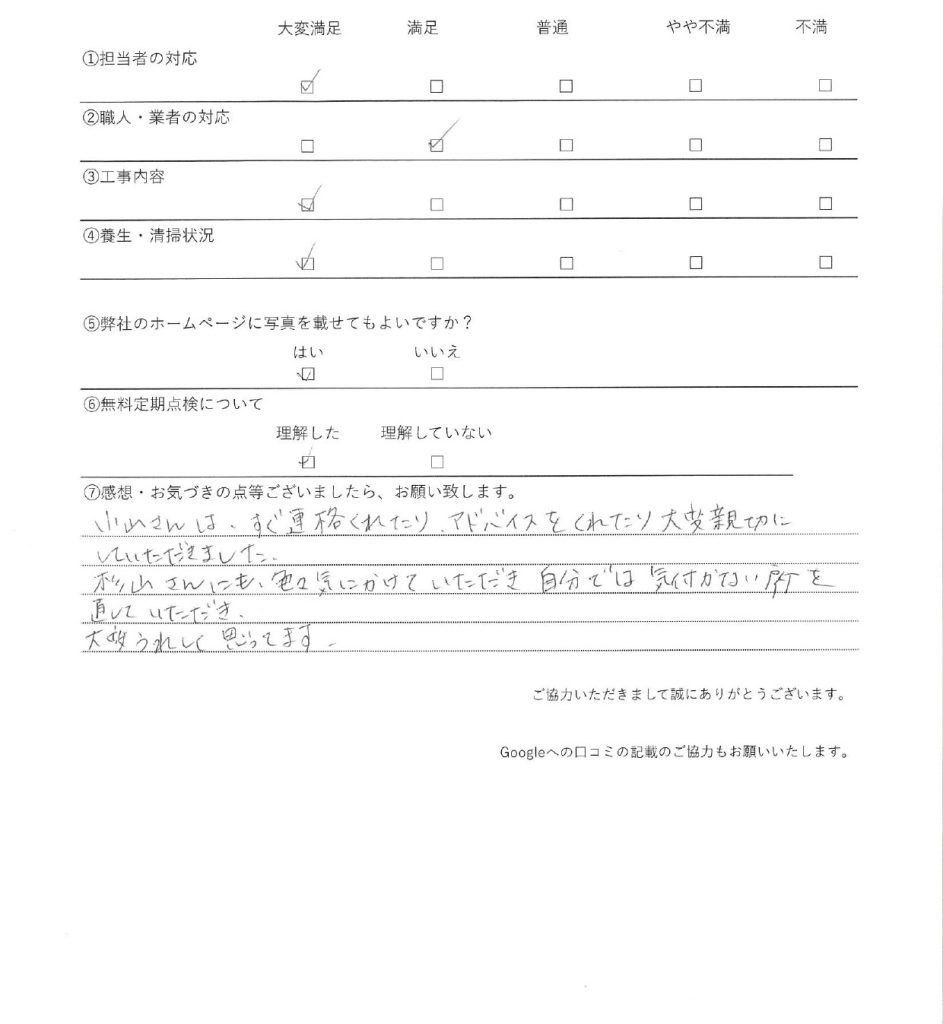 大変満足 満足 普通 やや不満 不満
①担当者の対応
☑ □ □ □ □
②職人・業者の対応
□ ☑ □ □ □
③工事内容
☑ □ □ □ □
④養生・清掃状況
☑ □ □ □ □
⑤弊社のホームページに写真を載せてもよいですか？
はい いいえ
☑ □
⑥無料定期点検について
理解した 理解していない
☑ □
⑦感想・お気づきの点等ございましたら、お願い致します。
小山さんは、すぐ連絡くれたり、アドバイスをくれたり大変親切に
していただきました。
杉山さんにも、色々気にかけていただき 自分では気付かない所を
直していただき、
大変うれしく思ってます。
ご協力いただきまして誠にありがとうございます。
Googleへの口コミの記載のご協力もお願いいたします。